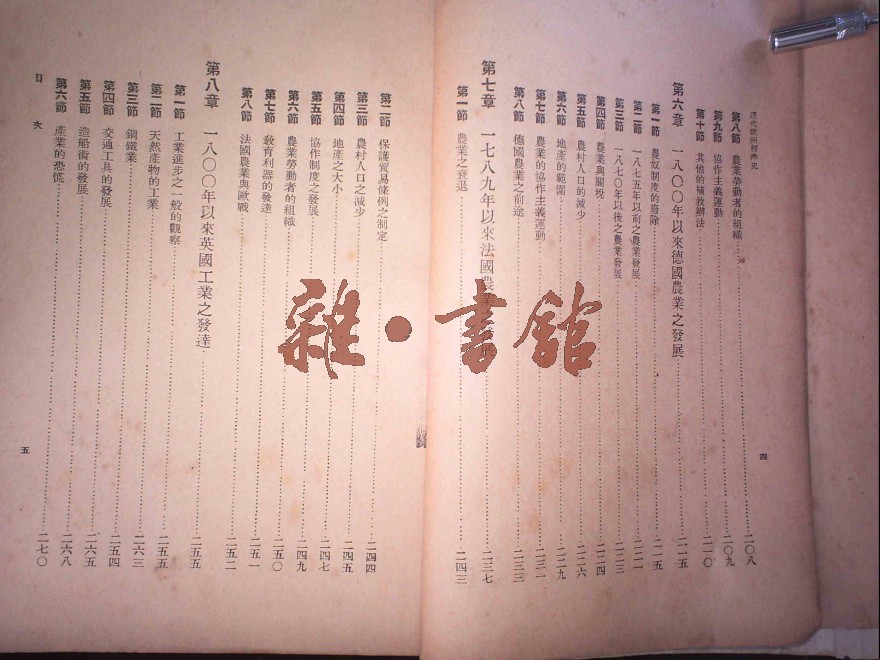 近代歐洲經濟史
第八節 農業勞動者的組織 二〇八
第九節 協作主義運動 二〇九
第十節 其他的補救辦法 二一〇
第六章 一八〇〇年以來德國農業之發展 二一五
第一節 農奴制度的廢除 二一五
第二節 一八七五年以前之農業發展
第三節 一八七〇年以後之農業發展 二二三
第四節 農業與關稅 二二四
第五節 農村人口的減少 二二六
第六節 地產的範圍 二二九
第七節 農業的協作主義運動 二三一
第八節 德國農業之前途 二三三
第七章 一七八九年以來法國農業 二三七
第一節 農業之衰退 二四三
四
第二節 保護貿易條例之制定 二四四
第三節 農村人口之減少 二四五
第四節 地產之大小 二四五
第五節 協作制度之發展 二四七
第六節 農業勞動者的組織 二四九
第七節 教育利器的發達 二五〇
第八節 法國農業與歐戰 二五一
二五二
第八章 一八〇〇年以來英國工業之發達 二五五
第一節 工業進步之一般的觀察 二五五
第二節 天然產物的工業
第三節 鋼鐵業 二六三
第四節 交通工具的發展 二五四
第五節 造船術的發展 二六五
第六節 產業的恐慌 二六八
二七〇
目次
五
雜·書館